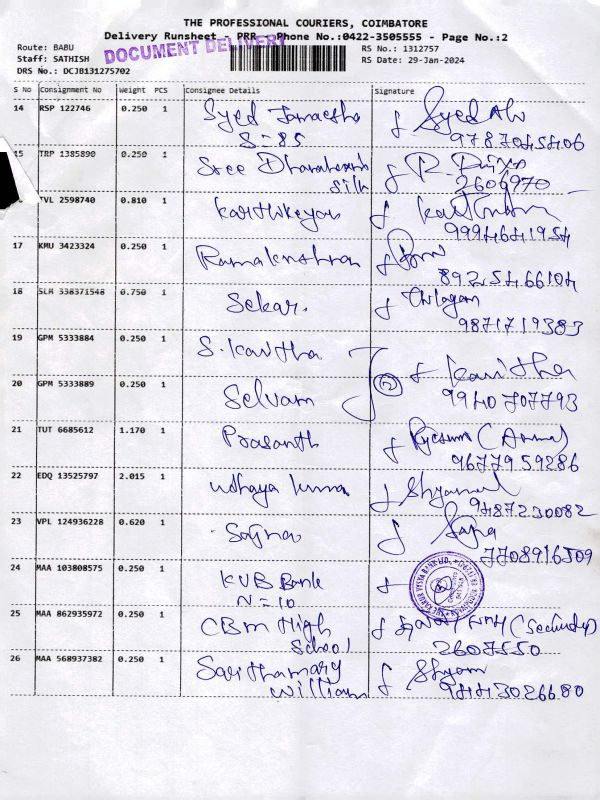 THE PROFESSIONAL COURIERS, COIMBATORE
Delivery Runsheet - PRR - Phone No.:0422-3505555 - Page No.:2
Route: BABU
RS No.: 1312757
DOCUMENT DELIVERY
Staff: SATHISH
RS Date: 29-Jan-2024
DRS No.: DCJB131275702
S No Consignment No Weight PCS Consignee Details Signature
14 RSP 122746 0.250 1 Syed
S=85 9787045406
15 TRP 1385890 0.250 1 Sree
Silk 2606970
TVL 2598740 0.810 1 Karthikeyan
9994641954
17 KMU 3423324 0.250 1 Ramakrishnan
8925466104
18 SLM 338371548 0.750 1 Sekar.
9871719383
19 GPM 5333884 0.250 1 S. Kavitha Kavitha
20 GPM 5333889 0.250 1 Selvam 2 9940707793
21 TUT 6685612 1.170 1 Prasanth
9677959286
22 EDQ 13525797 2.015 1 Udhaya Kumar
9487230082
23 VPL 124936228 0.620 1
7708916509
24 MAA 103808575 0.250 1 KVB Bank
N=10
25 MAA 862935972 0.250 1 CBM High (Security)
School 2607550
26 MAA 568937382 0.250 1 Sarithamary Shyam
William 9443026680